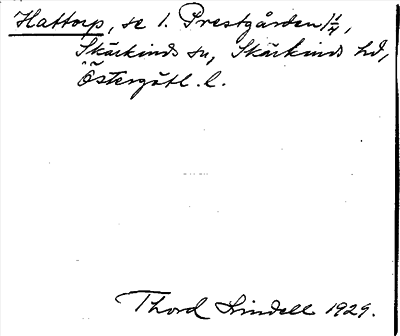 Hattorp, se 1. Prestgården 1/4,
Skärkinds sn, Skärkinds hd,
Östergötl. l.
Thord Lindell 1929.